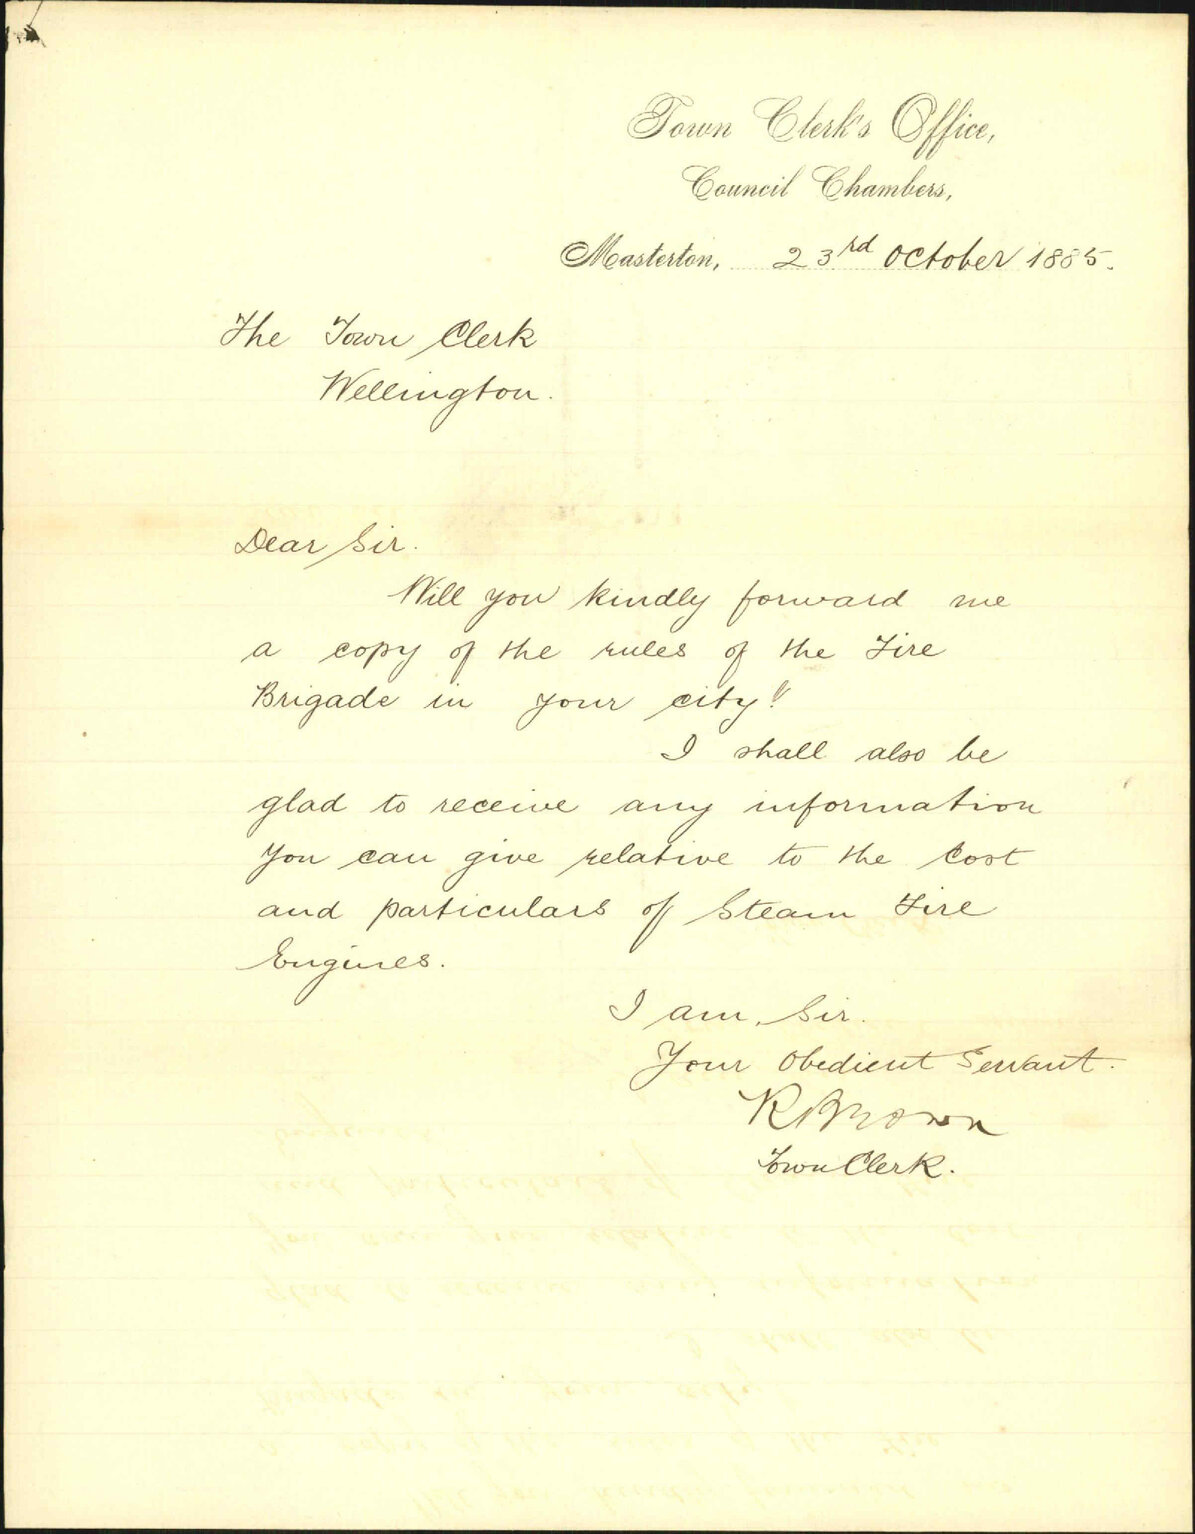 Town Clerk's Office,
Council Chambers,
Masterton, 23rd October 1885.
The Town Clerk
Wellington.
Dear Sir.
Will you kindly forward me
a copy of the rules of the Fire
Brigade in your city!!
I shall also be
glad to receive any information
you can give relative to the cost
and particulars of Steam Fire
Engines.
I am, Sir.
Your Obedient Servant.
R Brown
Town Clerk.